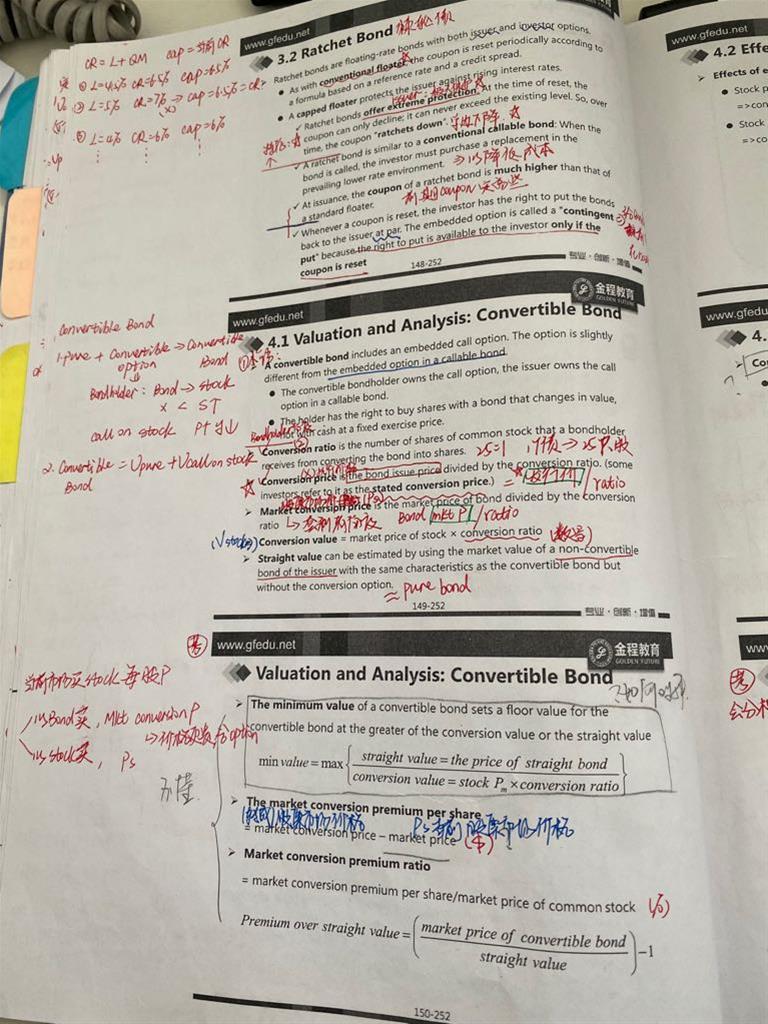 www.gfedu.net
3.2 Ratchet Bond 棘轮债
Ratchet bonds are floating-rate bonds with both issuer and investor options.
As with conventional floater, the coupon is reset periodically according to
a formula based on a reference rate and a credit spread.
A capped floater protects the issuer against rising interest rates.
Ratchet bonds offer extreme protection. At the time of reset, the
coupon can only decline; it can never exceed the existing level. So, over
time, the coupon "ratchets down".
A ratchet bond is similar to a conventional callable bond: When the
bond is called, the investor must purchase a replacement in the
prevailing lower rate environment. 以降低成本
At issuance, the coupon of a ratchet bond is much higher than that of
a standard floater.
Whenever a coupon is reset, the investor has the right to put the bonds
back to the issuer at par. The embedded option is called a "contingent
put" because the right to put is available to the investor only if the
coupon is reset
148-252
专业·创新·增值
CR = L + QM cap = 当前CR
① L=4.5% CR=6.5% cap=6.5%
② L=5% CR=7% → cap=6.5% = CR
③ L=4% CR=6% cap=6%
www.gfedu.net
金程教育
GOLDEN FUTURE
4.1 Valuation and Analysis: Convertible Bond
A convertible bond includes an embedded call option. The option is slightly
different from the embedded option in a callable bond.
The convertible bondholder owns the call option, the issuer owns the call
option in a callable bond.
The holder has the right to buy shares with a bond that changes in value,
not with cash at a fixed exercise price.
Conversion ratio is the number of shares of common stock that a bondholder
receives from converting the bond into shares. 25=1
Conversion price is the bond issue price divided by the conversion ratio. (some
investors refer to it as the stated conversion price.) = 发行价/ratio
Market conversion price is the market price of bond divided by the conversion
ratio Bond mkt P/ratio
Conversion value = market price of stock × conversion ratio (数量)
Straight value can be estimated by using the market value of a non-convertible
bond of the issuer with the same characteristics as the convertible bond but
without the conversion option. ≈ pure bond
149-252
专业·创新·增值
Convertible Bond
1. pure + Convertible → Convertible
option Bond
Bondholder: Bond → stock
X < S↑
call on stock P↑
2. Convertible = Vpure + Vcall on stock
Bond
www.gfedu.net
金程教育
GOLDEN FUTURE
Valuation and Analysis: Convertible Bond
The minimum value of a convertible bond sets a floor value for the
convertible bond at the greater of the conversion value or the straight value
min value = max { straight value = the price of straight bond
conversion value = stock Pm × conversion ratio }
The market conversion premium per share
= market conversion price − market price ($)
Market conversion premium ratio
= market conversion premium per share/market price of common stock (%)
Premium over straight value = ( market price of convertible bond / straight value ) − 1
150-252
当前市场买stock每股P
以Bond买, Mkt conversion P
以stock买, Ps
4.2 Effe
Effects of e
Stock p
=>con
Stock
=>co
www.gfedu
4.
Co
www